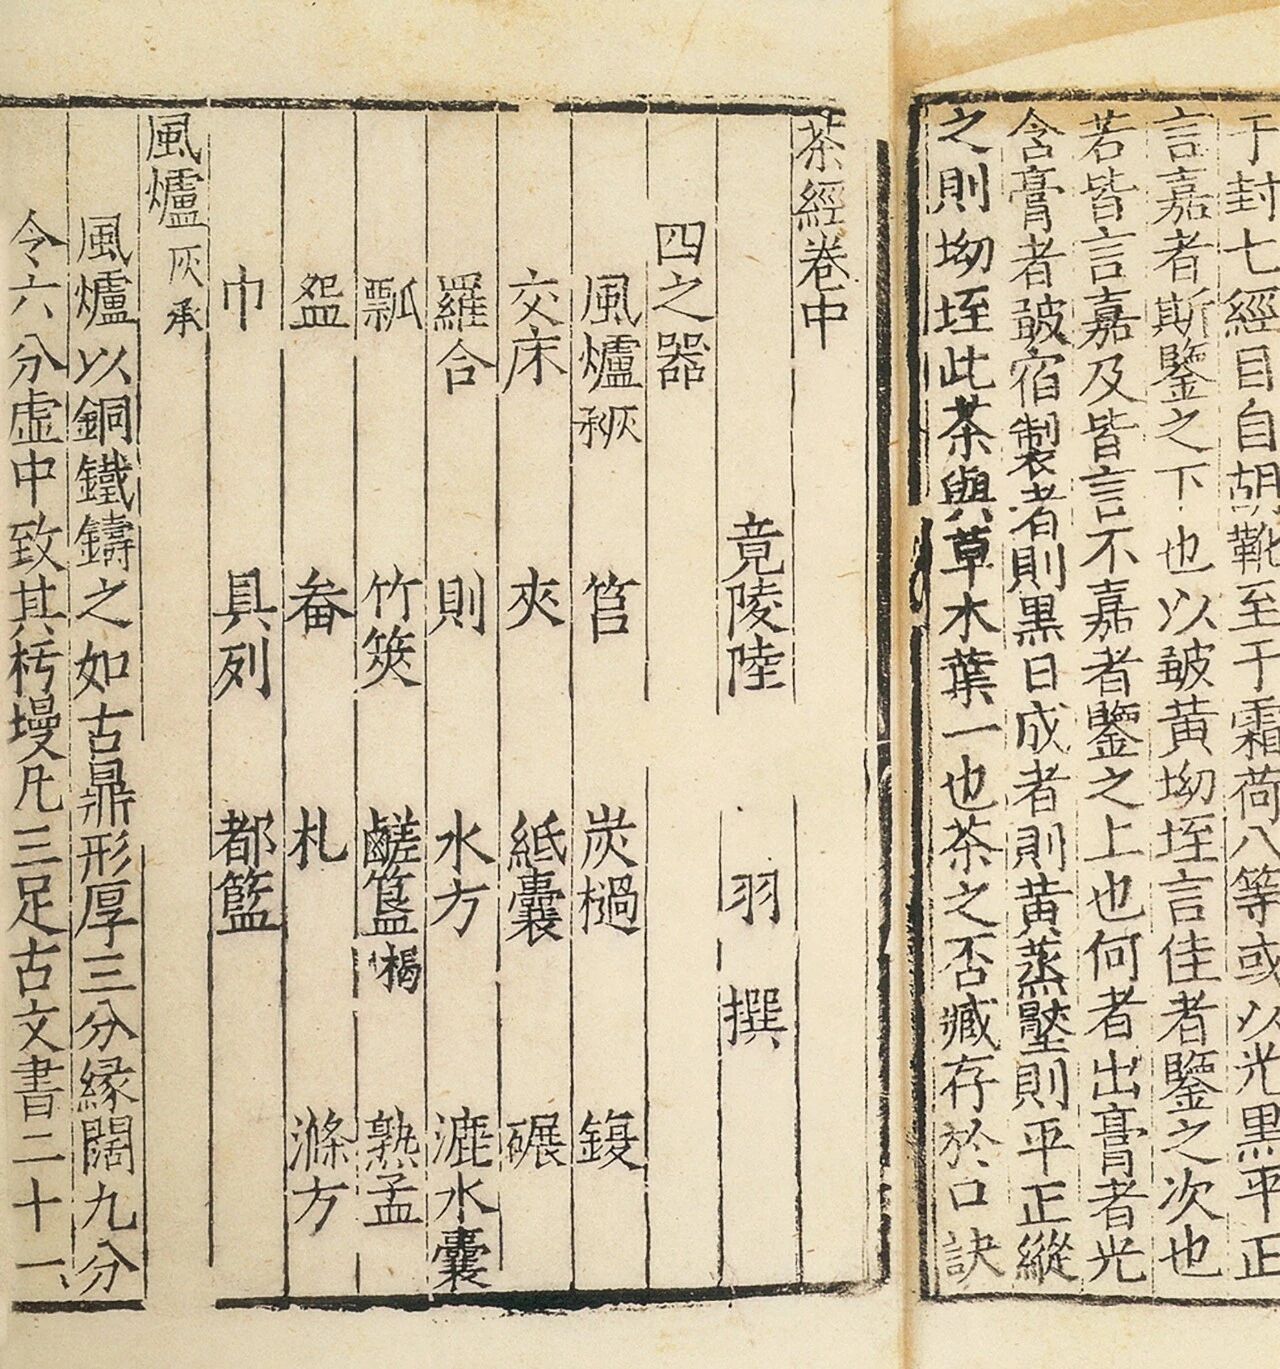 于封七經目自胡靴至于霜荷八等或以光黒平正
言嘉者斯鑒之下也以皺黄坳垤言佳者鑒之次也
若皆言嘉及皆言不嘉者鑒之上也何者出膏者光
含膏者皺宿製者則黒日成者則黄蒸壓則平正縱
之則坳垤此茶與草木葉一也茶之否臧存於口訣
茶經卷中
竟陵陸 羽 撰
四之器
風爐灰承 筥 炭檛 鍑
交床 夾 紙囊 碾
羅合 則 水方 漉水囊
瓢 竹筴 鹺簋揭 熟盂
盌 畚 札 滌方
巾 具列 都籃
風爐灰承
風爐以銅鐵鑄之如古鼎形厚三分緣闊九分
令六分虛中致其杇墁凡三足古文書二十一